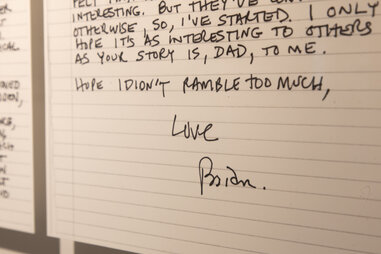 FELT THAT
INTERESTING. BUT THEY'VE
OTHERWISE, SO, I'VE STARTED. I ONLY
HOPE IT'S AS INTERESTING TO OTHERS
AS YOUR STORY IS, DAD, TO ME.
HOPE I DIDN'T RAMBLE TOO MUCH,
LOVE
Brian.